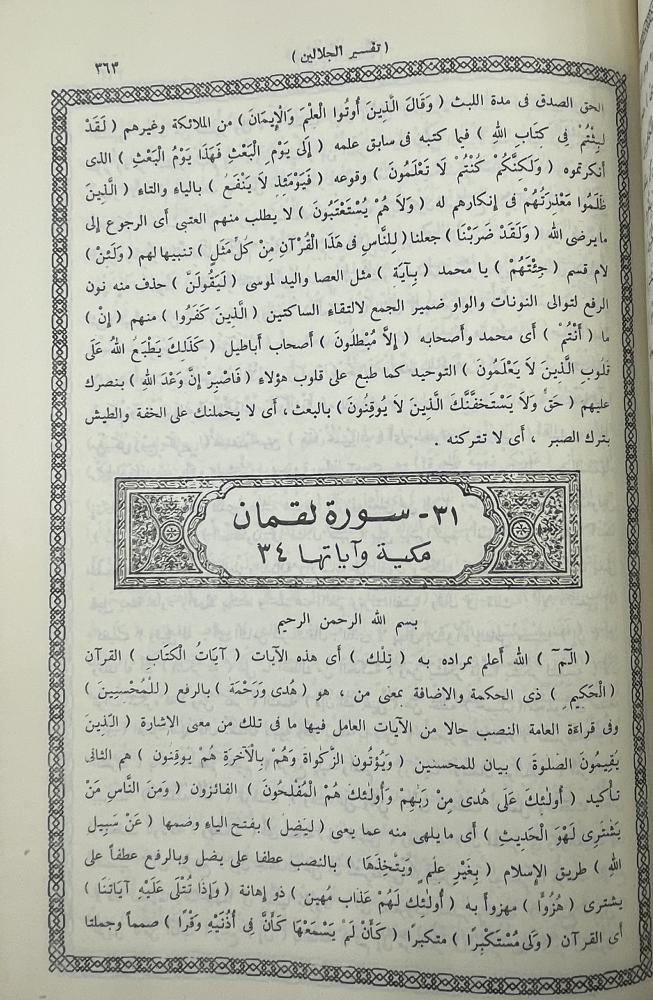 ( تفسير الجلالين )
٣٦٣
الحق الصدق فى مدة اللبث ( وَقَالَ الَّذِينَ أُوتُوا الْعِلْمَ وَالْإِيمَانَ ) من الملائكة وغيرهم ( لَقَدْ
لَبِثْتُمْ فِى كِتَابِ اللهِ ) فيما كتبه فى سابق علمه ( إِلَى يَوْمِ الْبَعْثِ فَهَذَا يَوْمُ الْبَعْثِ ) الذى
أنكرتموه ( وَلَكِنَّكُمْ كُنْتُمْ لَا تَعْلَمُونَ ) وقوعه ( فَيَوْمَئِذٍ لَا يَنْفَعُ ) بالياء والتاء ( الَّذِينَ
ظَلَمُوا مَعْذِرَتُهُمْ فى إنكارهم له ( وَلَا هُمْ يُسْتَعْتَبُونَ ) لا يطلب منهم العتبى أى الرجوع إلى
ما يرضى الله ( وَلَقَدْ ضَرَبْنَا ) جعلنا ( لِلنَّاسِ فِى هَذَا الْقُرْآنِ مِنْ كُلِّ مَثَلٍ ) تنبيها لهم ( وَلَئِنْ )
لام قسم ( جِئْتَهُمْ ) يا محمد ( بِآيَةٍ ) مثل العصا واليد لموسى ( لَيَقُولَنَّ ) حذف منه نون
الرفع لتوالى النونات والواو ضمير الجمع لالتقاء الساكنين ( الَّذِينَ كَفَرُوا ) منهم ( إِنْ )
ما ( أَنْتُمْ ) أى محمد وأصحابه ( إِلَّا مُبْطِلُونَ ) أصحاب أباطيل ( كَذَلِكَ يَطْبَعُ اللهُ عَلَى
قُلُوبِ الَّذِينَ لَا يَعْلَمُونَ ) التوحيد كما طبع على قلوب هؤلاء ( فَاصْبِرْ إِنَّ وَعْدَ اللهِ ) بنصرك
عليهم ( حَقٌّ وَلَا يَسْتَخِفَّنَّكَ الَّذِينَ لَا يُوقِنُونَ ) بالبعث، أى لا يحملنك على الخفة والطيش
بترك الصبر ، أى لا تتركنه .
٣١ - سورة لقمان
مكية وآياتها ٣٤
بسم الله الرحمن الرحيم
( الٓمٓ ) الله أعلم بمراده به ( تِلْكَ ) أى هذه الآيات ( آيَاتُ الْكِتَابِ ) القرآن
( الْحَكِيمِ ) ذى الحكمة والإضافة بمعنى من ، هو ( هُدًى وَرَحْمَةً ) بالرفع ( لِلْمُحْسِنِينَ )
وفى قراءة العامة النصب حالا من الآيات العامل فيها ما فى تلك من معنى الإشارة ( الَّذِينَ
يُقِيمُونَ الصَّلٰوةَ ) بيان للمحسنين ( وَيُؤْتُونَ الزَّكواةَ وَهُمْ بِالْآخِرَةِ هُمْ يُوقِنُونَ ) هم الثانى
تأكيد ( أُولٰئِكَ عَلَى هُدًى مِنْ رَبِّهِمْ وَأُولٰئِكَ هُمُ الْمُفْلِحُونَ ) الفائزون ( وَمِنَ النَّاسِ مَنْ
يَشْتَرِى لَهْوَ الْحَدِيثِ ) أى ما يلهى منه عما يعنى ( لِيَضِلَّ ) بفتح الياء وضمها ( عَنْ سَبِيلِ
اللهِ ) طريق الإسلام ( بِغَيْرِ عِلْمٍ وَيَتَّخِذَهَا ) بالنصب عطفا على يضل وبالرفع عطفاً على
يشترى ( هُزُوًا ) مهزوأ به ( أُولٰئِكَ لَهُمْ عَذَابٌ مُهِينٌ ) ذو إهانة ( وَإِذَا تُتْلَى عَلَيْهِ آيَاتُنَا )
أى القرآن ( وَلَّى مُسْتَكْبِرًا ) متكبرا ( كَأَنْ لَمْ يَسْمَعْهَا كَأَنَّ فِى أُذُنَيْهِ وَقْرًا ) صمماً وجملتا